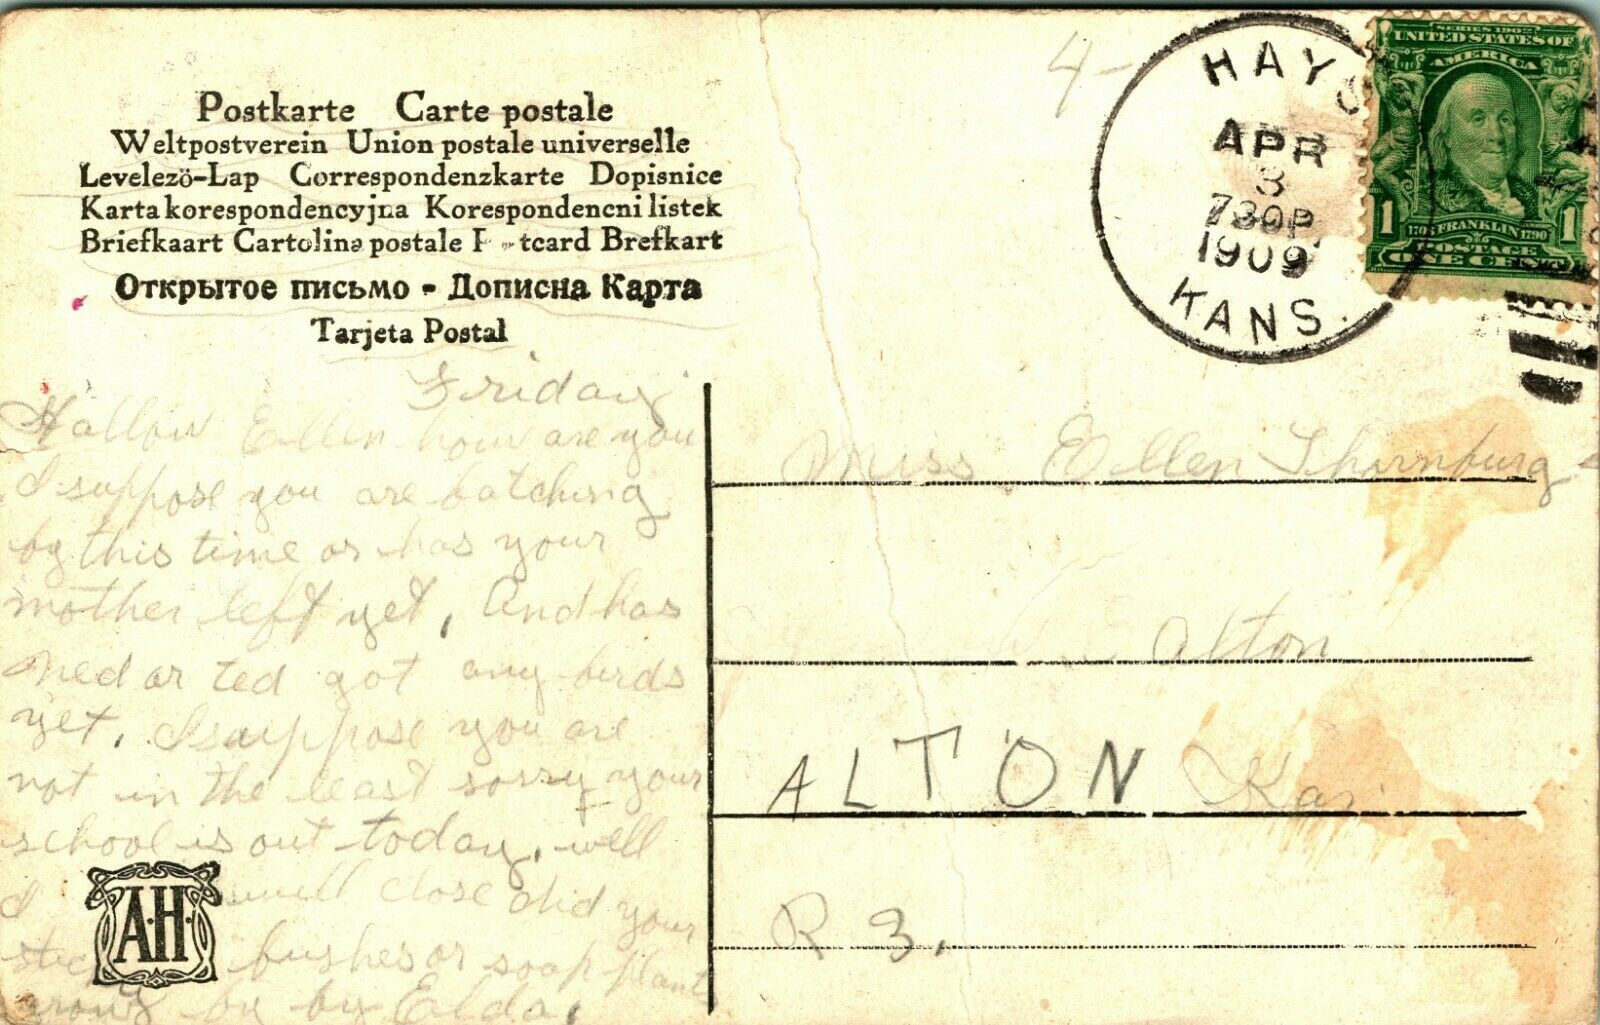 Postkarte Carte postale
Weltpostverein Union postale universelle
Levelezö-Lap Correspondenzkarte Dopisnice
Karta korespondencyjna Korespondencni listek
Briefkaart Cartolina postale P tcard Brefkort
Открытое письмо - Дописна Карта
Tarjeta Postal
HAYS
APR
3
730P.
1909
KANS.
SERIES 1902
UNITED STATES OF
AMERICA
1 1706 FRANKLIN 1790 1
POSTAGE
ONE CENT
4-
Friday
Hallow Ellen how are you
I suppose you are batching
by this time or has your
mother left yet, And has
Ned or ted got any birds
yet, I suppose you are
not in the least sorry your
school is out today, well
I will close did your
bushes or soap plants
grow by by Elda,
A.H.
Miss. Ellen Thornburg
Alton
ALTON Kan
R 3.